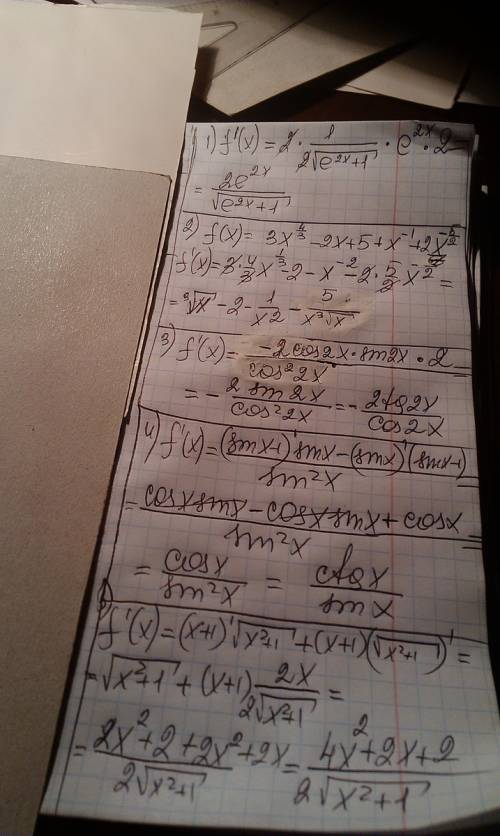 1) f'(x) = 2 · 1/(2√(e^(2x)+1)) · e^(2x) · 2
= 2e^(2x)/√(e^(2x)+1)
2) f(x) = 3x^(4/3) - 2x + 5 + x^(-1) + 2x^(-5/2)
f'(x) = 3·4/3 x^(1/3) - 2 - x^(-2) - 2·5/2 x^(-7/2) =
= ³√x - 2 - 1/x² - 5/(x³√x)
3) f'(x) = -2cos2x·sin2x·2/cos²2x =
= - 2sin2x/cos²2x = - 2tg2x/cos2x
4) f'(x) = ((sinx-1)'sinx - (sinx)'(sinx-1))/sin²x =
= (cosxsinx - cosxsinx + cosx)/sin²x =
= cosx/sin²x = ctgx/sinx
f'(x) = (x+1)'√(x²+1) + (x+1)(√(x²+1))' =
= √(x²+1) + (x+1) 2x/(2√(x²+1)) =
= (2x²+2+2x²+2x)/(2√(x²+1)) = (4x²+2x+2)/(2√(x²+1))